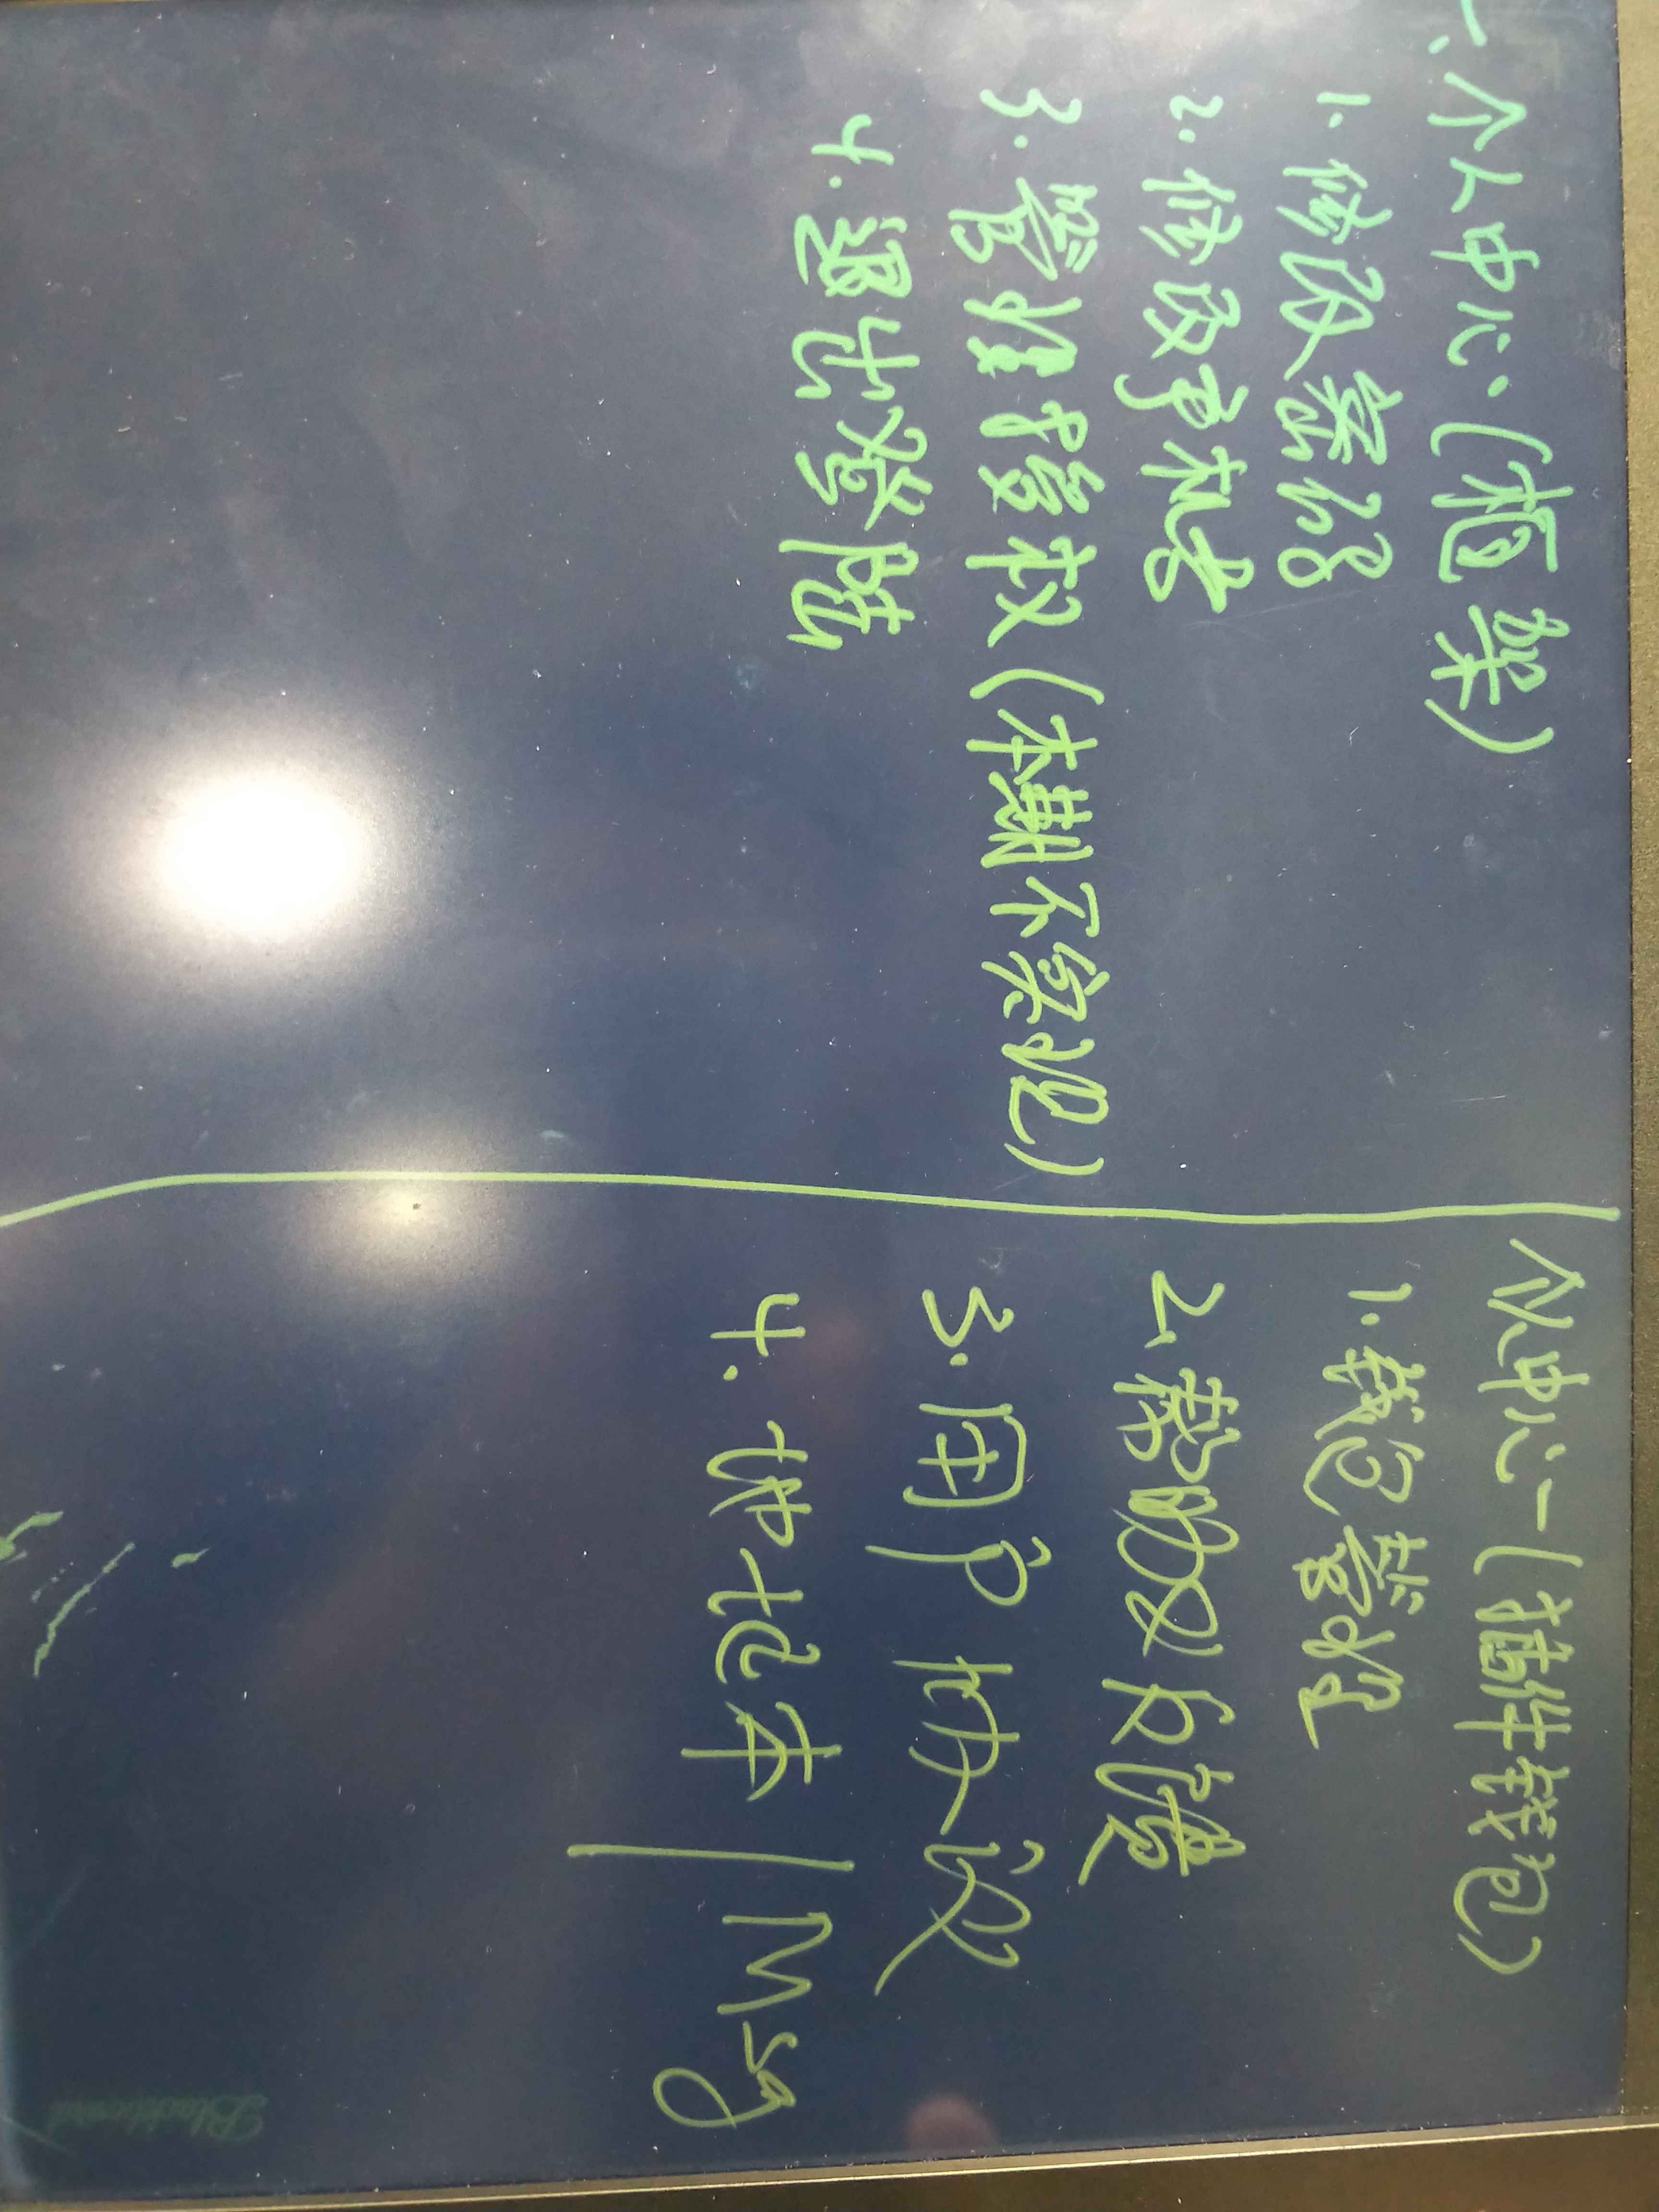 一、个人中心(框架)
1. 修改密码
2. 修改手机号
3. 管理授权(本期不实现)
4. 退出登陆
个人中心—(插件钱包)
1. 钱包管理
2. 帮助及反馈
3. 用户协议
4. 地址本 / Msg
Blackboard